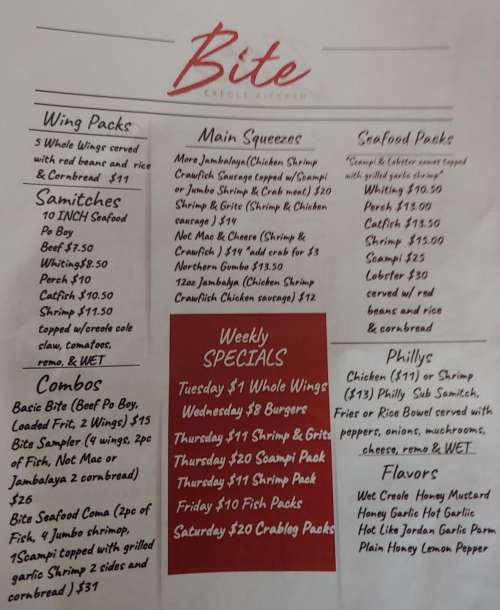 Bite
CREOLE KITCHEN
Wing Packs
5 Whole Wings served
with red beans and rice
& Cornbread $11
Samitches
10 INCH Seafood
Po Boy
Beef $7.50
Whiting$8.50
Perch $10
Catfish $10.50
Shrimp $11.50
topped w/creole cole
slaw, tomatoes,
remo, & WET
Combos
Basic Bite (Beef Po Boy,
Loaded Frit, 2 Wings) $15
Bite Sampler (4 wings, 2pc
of Fish, Not Mac or
Jambalaya 2 cornbread)
$26
Bite Seafood Coma (2pc of
Fish, 4 Jumbo shrimop,
1Scampi topped with grilled
garlic Shrimp 2 sides and
cornbread ) $31
Main Squeezes
More Jambalaya(Chicken Shrimp
Crawfish Sausage topped w/Scampi
or Jumbo Shrimp & Crab meat) $20
Shrimp & Grits (Shrimp & Chicken
sausage ) $14
Not Mac & Cheese (Shrimp &
Crawfish ) $14 *add crab for $3
Northern Gumbo $13.50
12oz Jambalya (Chicken Shrimp
Crawfiish Chicken sausage) $12
Weekly
SPECIALS
Tuesday $1 Whole Wings
Wednesday $8 Burgers
Thursday $11 Shrimp & Grits
Thursday $20 Scampi Pack
Thursday $11 Shrimp Pack
Friday $10 Fish Packs
Saturday $20 Crableg Packs
Seafood Packs
*Scampi & Lobster comes topped
with grilled garlic shrimp*
Whiting $10.50
Perch $13.00
Catfish $13.50
Shrimp $15.00
Scampi $25
Lobster $30
served w/ red
beans and rice
& cornbread
Phillys
Chicken ($11) or Shrimp
($13) Philly Sub Samitch,
Fries or Rice Bowel served with
peppers, onions, muchrooms,
cheese, remo & WET
Flavors
Wet Creole Honey Mustard
Honey Garlic Hot Garliic
Hot Like Jordan Garlic Parm
Plain Honey Lemon Pepper